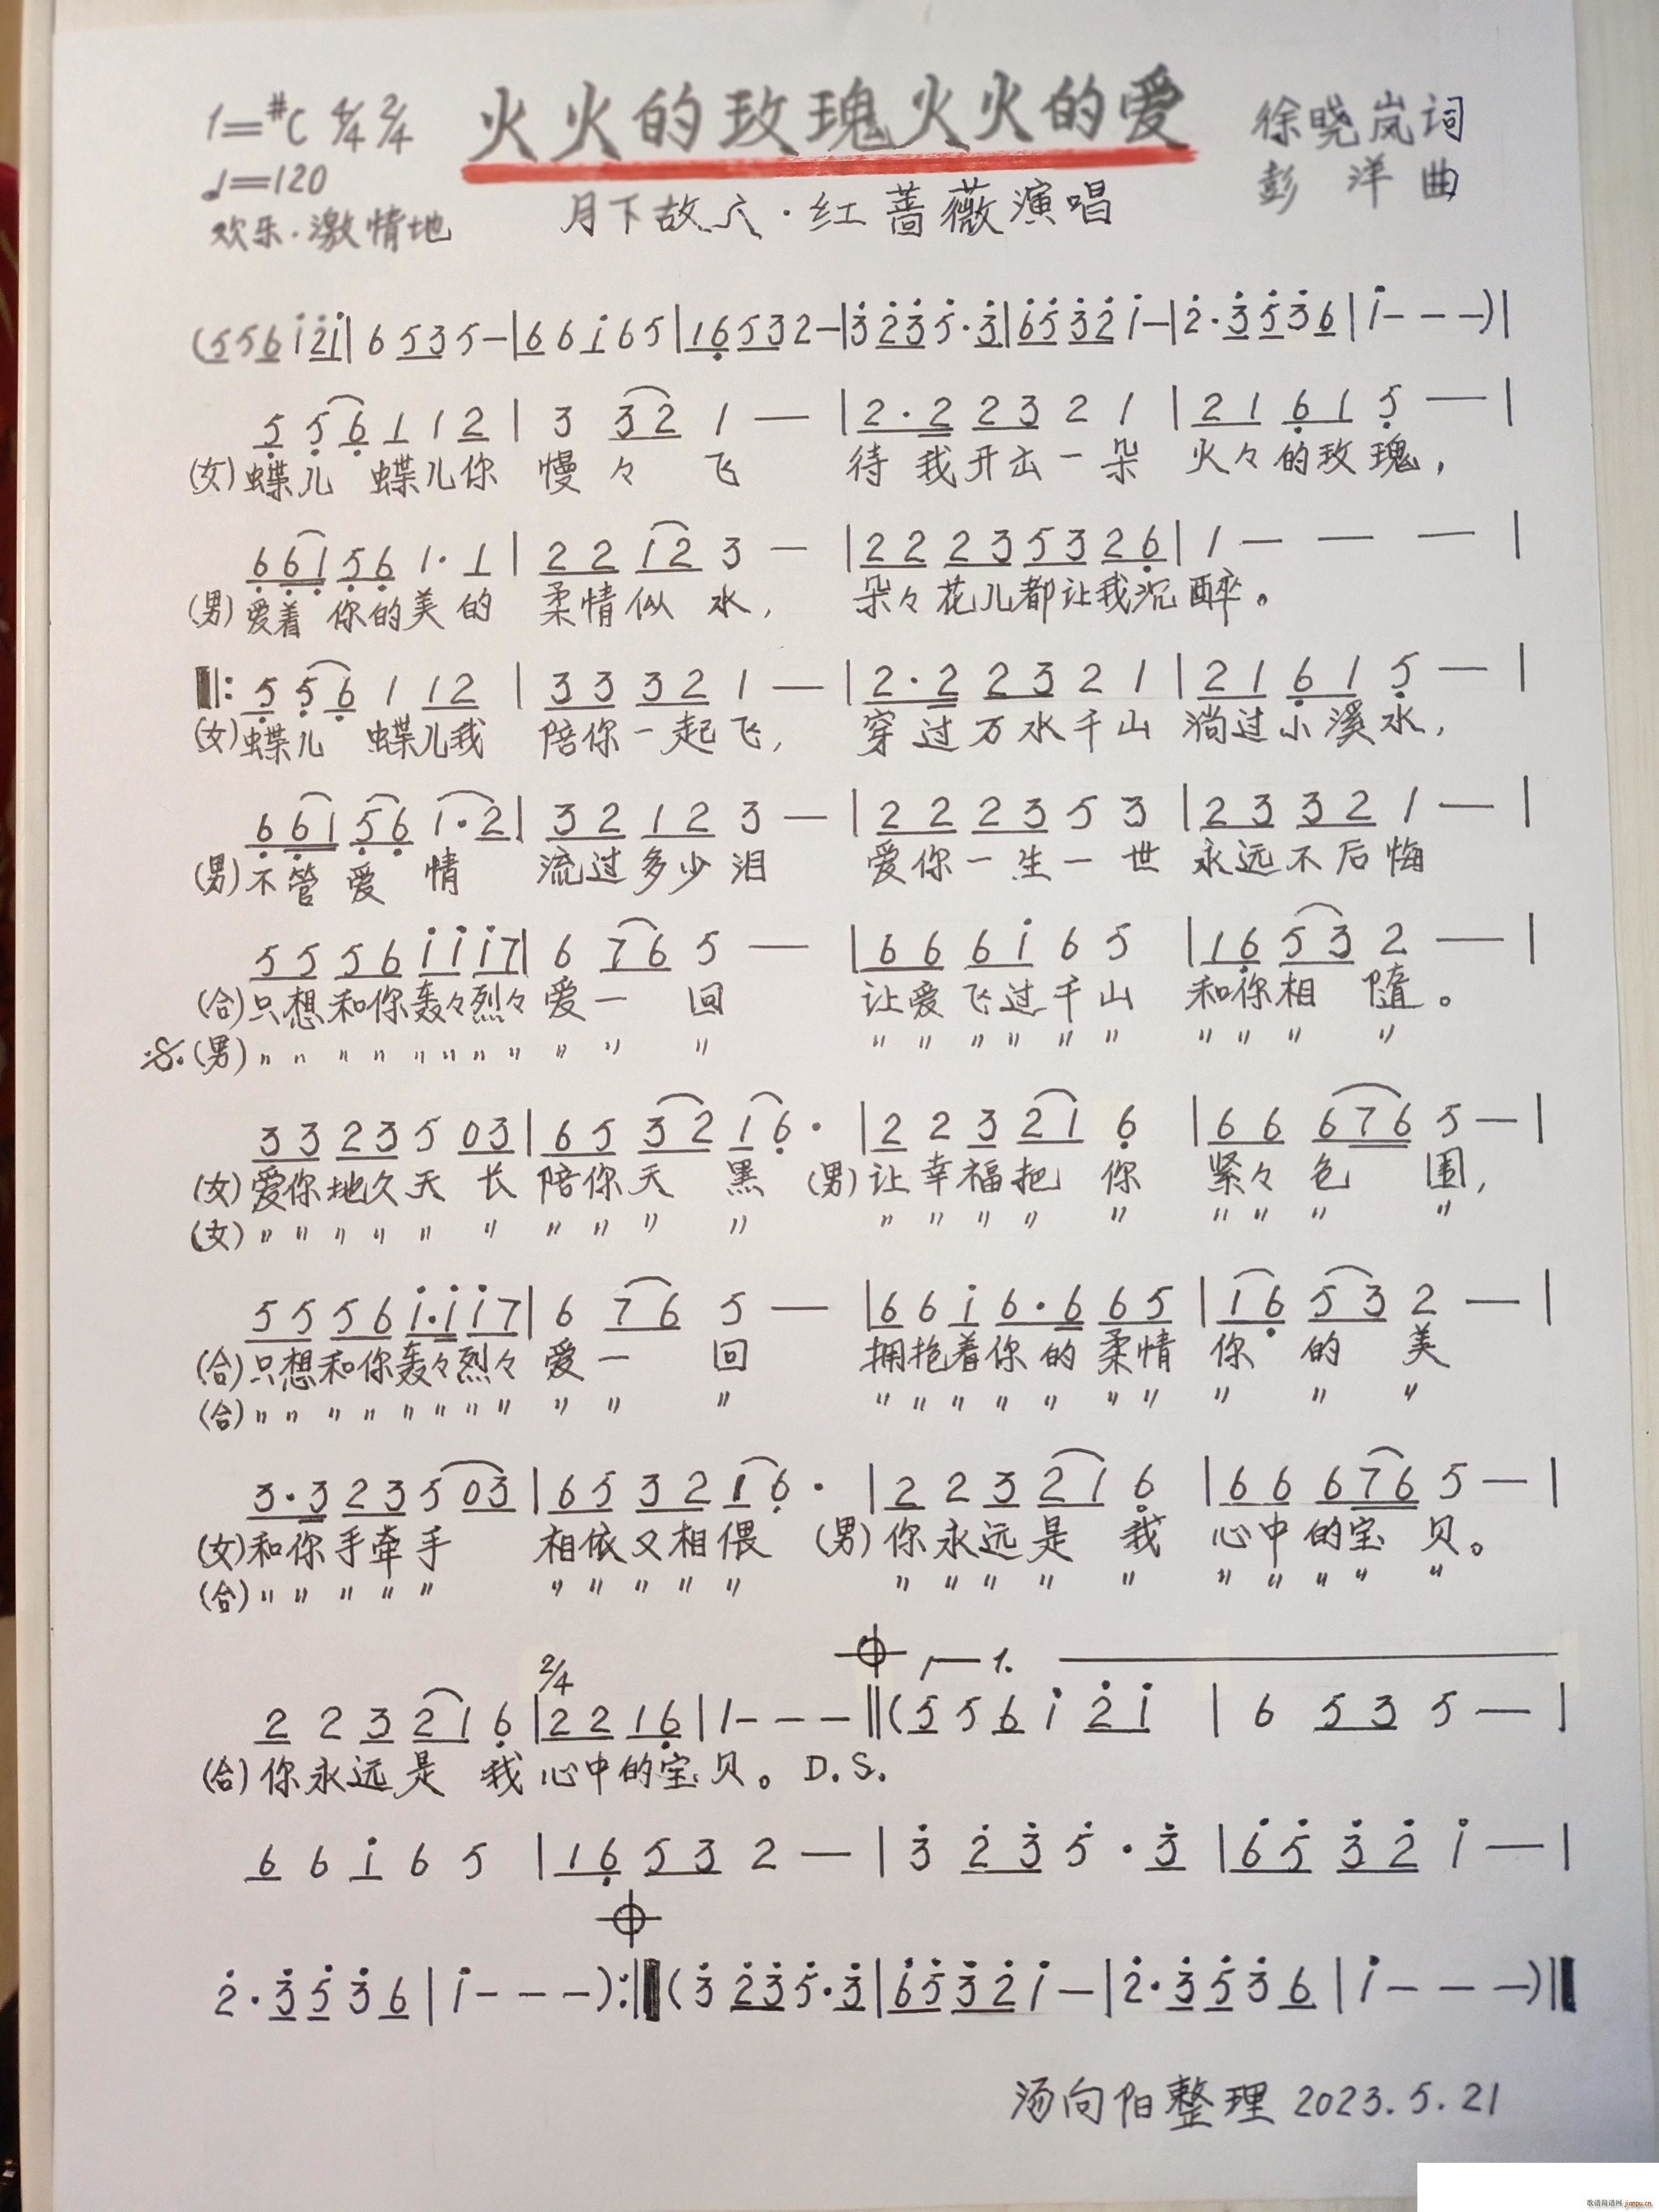 1=#C 4/4 2/4 火火的玫瑰火火的爱 徐晓岚词
♩=120 彭 洋 曲
欢乐·激情地 月下故六·红蔷薇演唱
(5 5 6 i 2 i | 6 5 3 5 — | 6 6 i 6 5 | 1 6 5 3 2 — | 3 2 3 5 · 3 | 6 5 3 2 i — | 2 · 3 5 3 6 | i - - - ) |
5 5 6 1 1 2 | 3 3 2 1 — | 2 · 2 2 3 2 1 | 2 1 6 1 5 — |
(女) 蝶儿 蝶儿你 慢々 飞 待我开出一朵 火々的玫瑰,
6 6 1 5 6 1 · 1 | 2 2 1 2 3 — | 2 2 2 3 5 3 2 6 | 1 — — — |
(男) 爱着 你的美的 柔情似水, 朵々花儿都让我沉醉。
‖: 5 5 6 1 1 2 | 3 3 3 2 1 — | 2 · 2 2 3 2 1 | 2 1 6 1 5 — |
(女) 蝶儿 蝶儿我 陪你一起飞, 穿过万水千山 淌过小溪水,
6 6 1 5 6 1 · 2 | 3 2 1 2 3 — | 2 2 2 3 5 3 | 2 3 3 2 1 — |
(男) 不管爱情 流过多少泪 爱你一生一世 永远不后悔
5 5 5 6 i i i 7 | 6 7 6 5 — | 6 6 6 i 6 5 | 1 6 5 3 2 — |
(合) 只想和你轰々烈々 爱一 回 让爱飞过千山 和你相 随。
(男) 〃 〃 〃 〃 〃 〃 〃 〃 〃 〃 〃 〃 〃 〃 〃 〃 〃 〃 〃 〃 〃
3 3 2 3 5 0 3 | 6 5 3 2 1 6 · | 2 2 3 2 1 6 | 6 6 6 7 6 5 — |
(女) 爱你地久天 长 陪你天 黑 (男) 让幸福把 你 紧々包 围,
(女) 〃 〃 〃 〃 〃 〃 〃 〃 〃 〃 〃 〃 〃 〃 〃 〃 〃 〃 〃
5 5 5 6 i · i i 7 | 6 7 6 5 — | 6 6 i 6 · 6 6 5 | 1 6 5 3 2 — |
(合) 只想和你轰々烈々 爱一 回 拥抱着你的柔情 你 的 美
(合) 〃 〃 〃 〃 〃 〃 〃 〃 〃 〃 〃 〃 〃 〃 〃 〃 〃 〃 〃 〃 〃
3 · 3 2 3 5 0 3 | 6 5 3 2 1 6 · | 2 2 3 2 1 6 | 6 6 6 7 6 5 — |
(女) 和你手牵手 相依又相偎 (男) 你永远是 我 心中的宝 贝。
(合) 〃 〃 〃 〃 〃 〃 〃 〃 〃 〃 〃 〃 〃 〃 〃 〃 〃 〃 〃 〃
2/4 1.
2 2 3 2 1 6 | 2 2 1 6 | 1 - - - ‖ (5 5 6 i 2 i | 6 5 3 5 — |
(合) 你永远是 我 心中的宝贝。 D.S.
6 6 i 6 5 | 1 6 5 3 2 — | 3 2 3 5 · 3 | 6 5 3 2 i — |
2 · 3 5 3 6 | i - - - ) :‖ (3 2 3 5 · 3 | 6 5 3 2 i — | 2 · 3 5 3 6 | i - - - ) ‖
汤向阳整理 2023.5.21
歌谱简谱网 jianpu.cn